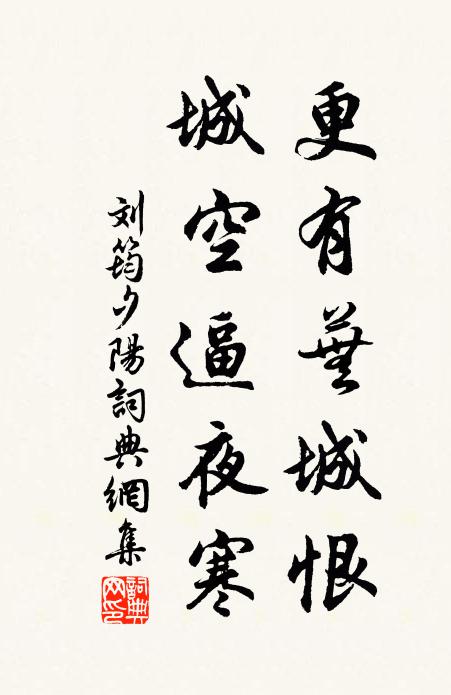 更有蕪城恨
城空逼夜寒
刘筠夕陽詞典網集
詞典
网印